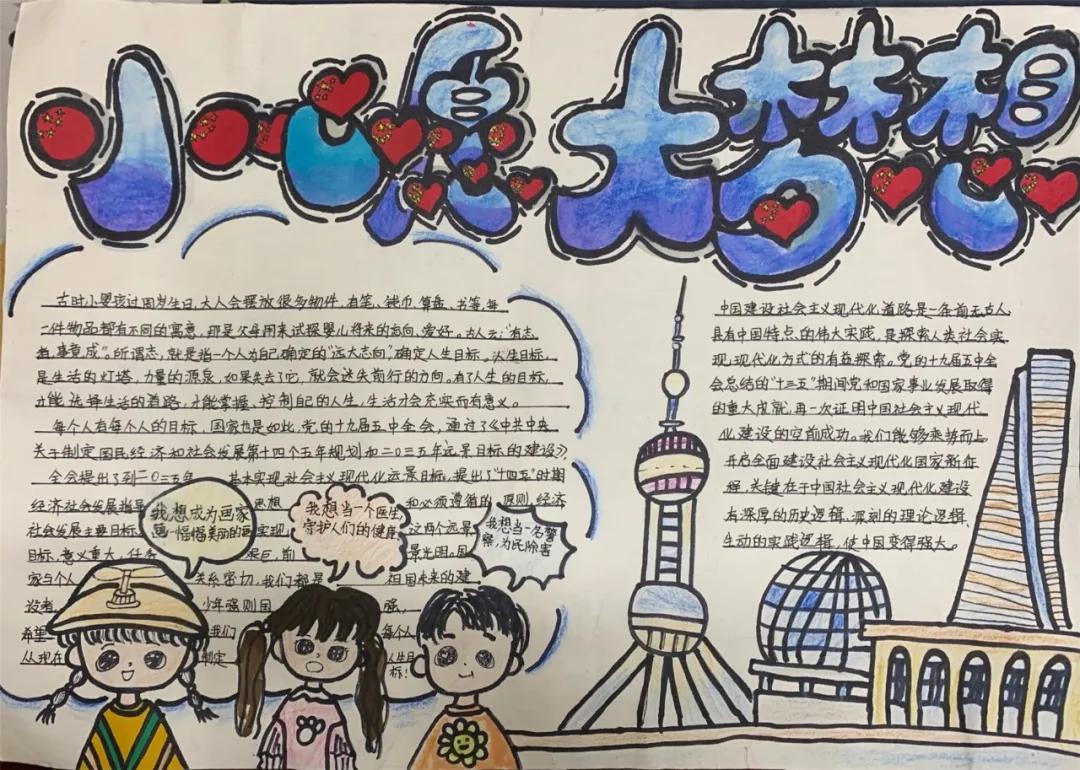 小心愿 大梦想
古时小婴孩过周岁生日,大人会摆放很多物件,有笔、钱币、算盘、书等,每
一件物品都有不同的寓意,那是父母用来试探婴儿将来的志向、爱好。古人云:“有志
者,事竟成”。所谓志,就是指一个人为自己确定的“远大志向”,确定人生目标。人生目标,
是生活的灯塔,力量的源泉,如果失去了它,就会迷失前行的方向。有了人生的目标,
才能选择生活的道路,才能掌握、控制自己的人生,生活才会充实而有意义。
每个人有每个人的目标,国家也是如此,党的十九届五中全会,通过了《中共中央
关于制定国民经济和社会发展第十四个五年规划和二〇三五年远景目标的建设》,
全会提出了到二〇三五年 基本实现社会主义现代化远景目标,提出了“十四五”时期
经济社会发展指导 思想 和必须遵循的 原则,经济
社会发展主要目标, 实现 这两个远景
目标,意义重大,任务 艰巨,前 景光明。国
家与个人 关系密切,我们都是 祖国未来的建
设者, 少年强则国 强,
希望 我们 每个人
从现在 制定 人生目
标!
我想成为画家
画一幅幅美丽的画
我想当一个医生
守护人们的健康
我想当一名警
察,为民除害
中国建设社会主义现代化道路是一条前无古人
具有中国特点的伟大实践,是探索人类社会实
现现代化方式的有益探索。党的十九届五中全
会总结的“十三五”期间党和国家事业发展取得
的重大成就,再一次证明中国社会主义现代
化建设的空前成功。我们能够乘势而上
开启全面建设社会主义现代化国家新征
程,关键在于中国社会主义现代化建设
有深厚的历史逻辑、深刻的理论逻辑、
生动的实践逻辑,使中国变得强大。